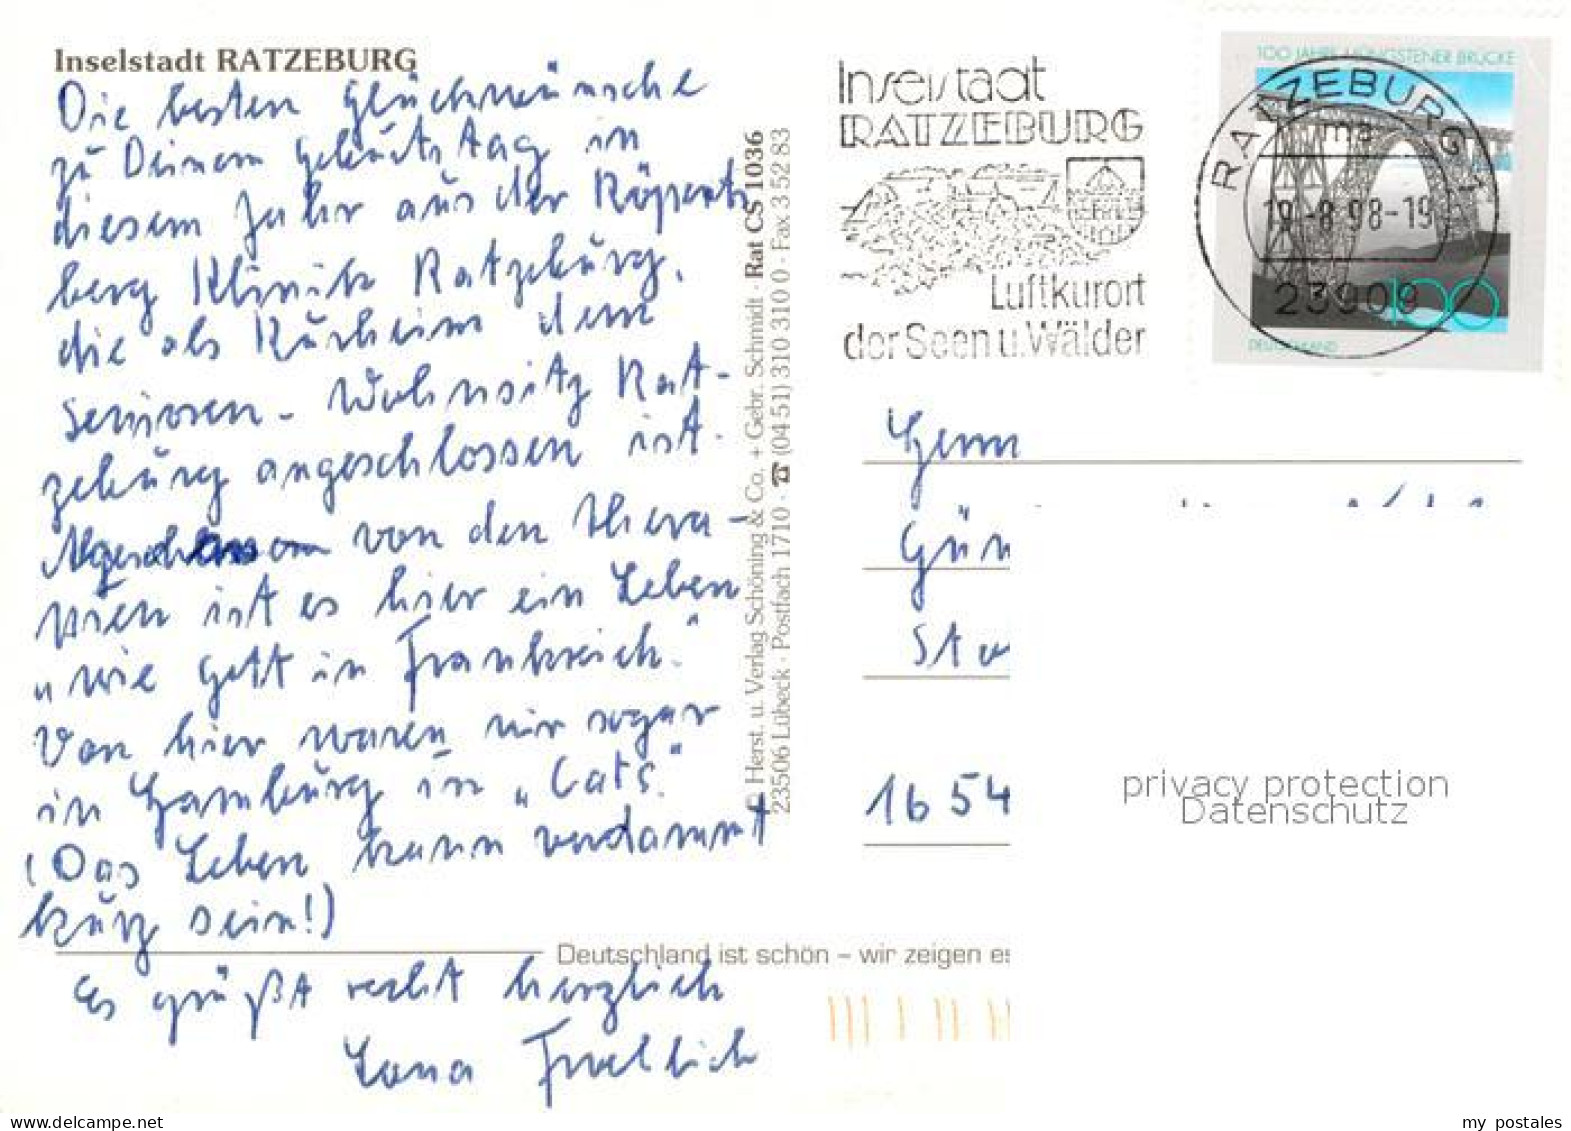 Inselstadt RATZEBURG
Die besten Glückwünsche
zu Deinem Geburtstag in
diesem Jahr aus der Röpers
berg Klinik Ratzeburg,
die als Kurheim dem
Senioren- Wohnsitz Rat-
zeburg angeschlossen ist.
von den Thera-
pien ist es hier ein Leben
„wie Gott in Frankreich."
Von hier waren wir sogar
in Hamburg in „Cats."
(Das Leben kann verdammt
kurz sein!)
Es grüßt recht herzlich
Lona Froelich
© Herst. u. Verlag Schöning & Co. + Gebr. Schmidt · Rat CS 1036
23506 Lübeck · Postfach 1710 · ☎ (04 51) 310 310 0 · Fax 3 52 83
Deutschland ist schön – wir zeigen es
Inselstadt
RATZEBURG
Luftkurort
der Seen u. Wälder
100 JAHRE MÜNGSTENER BRÜCKE
RATZEBURG 1
ma
-8.98-19
23909
100
DEUTSCHLAND
Herrn
Gün
Sta
1654
privacy protection
Datenschutz
my_postales